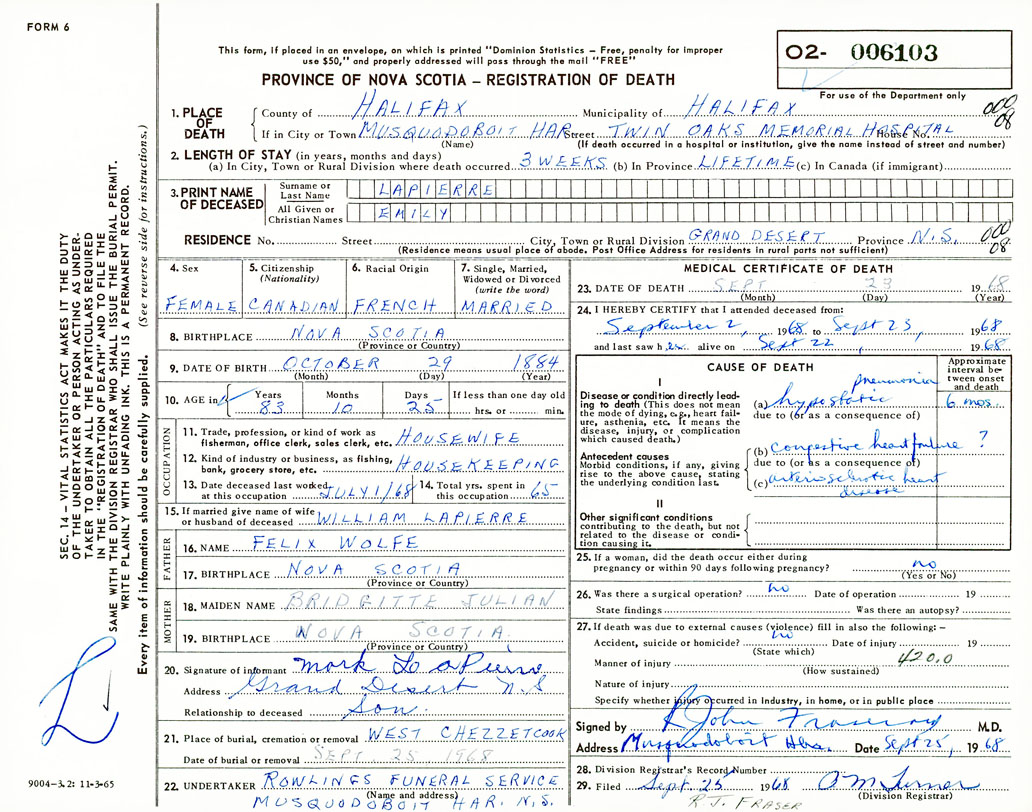 FORM 6
This form, if placed in an envelope, on which is printed "Dominion Statistics – Free, penalty for improper
use $50," and properly addressed will pass through the mail "FREE"
PROVINCE OF NOVA SCOTIA – REGISTRATION OF DEATH
O2- 006103
For use of the Department only
1. PLACE OF DEATH County of HALIFAX Municipality of HALIFAX 000 08
If in City or Town MUSQUODOBOIT HAR Street TWIN OAKS MEMORIAL HOSPITAL House No.
(Name) (If death occurred in a hospital or institution, give the name instead of street and number)
2. LENGTH OF STAY (in years, months and days)
(a) In City, Town or Rural Division where death occurred 3 WEEKS (b) In Province LIFETIME (c) In Canada (if immigrant)
3. PRINT NAME OF DECEASED Surname or Last Name LAPIERRE
All Given or Christian Names EMILY
RESIDENCE No. Street City, Town or Rural Division GRAND DESERT Province N.S. 000 08
(Residence means usual place of abode. Post Office Address for residents in rural parts not sufficient)
4. Sex FEMALE
5. Citizenship (Nationality) CANADIAN
6. Racial Origin FRENCH
7. Single, Married, Widowed or Divorced (write the word) MARRIED
8. BIRTHPLACE NOVA SCOTIA
(Province or Country)
9. DATE OF BIRTH OCTOBER 29 1884
(Month) (Day) (Year)
10. AGE in Years 83 Months 10 Days 25 If less than one day old hrs. or min.
OCCUPATION
11. Trade, profession, or kind of work as
fisherman, office clerk, sales clerk, etc. HOUSEWIFE
12. Kind of industry or business, as fishing,
bank, grocery store, etc. HOUSEKEEPING
13. Date deceased last worked at this occupation JULY 1/68 14. Total yrs. spent in this occupation 65
15. If married give name of wife
or husband of deceased WILLIAM LAPIERRE
FATHER
16. NAME FELIX WOLFE
17. BIRTHPLACE NOVA SCOTIA
(Province or Country)
MOTHER
18. MAIDEN NAME BRIDGITTE JULIAN
19. BIRTHPLACE NOVA SCOTIA
(Province or Country)
20. Signature of informant Mark La Pierre
Address Grand Desert N.S
Relationship to deceased Son.
21. Place of burial, cremation or removal WEST CHEZZETCOOK
Date of burial or removal SEPT 25 1968
22. UNDERTAKER ROWLINGS FUNERAL SERVICE
(Name and address)
MUSQUODOBOIT HAR. N.S.
MEDICAL CERTIFICATE OF DEATH
23. DATE OF DEATH SEPT 23 1968
(Month) (Day) (Year)
24. I HEREBY CERTIFY that I attended deceased from:
September 2, 1968 to Sept 23, 1968
and last saw her alive on Sept 22 1968
CAUSE OF DEATH
Approximate interval between onset and death
I
Disease or condition directly leading to death (This does not mean the mode of dying, e.g., heart failure, asthenia, etc. It means the disease, injury, or complication which caused death.)
(a) hypostatic pneumonia 6 mos.
due to (or as a consequence of)
Antecedent causes
Morbid conditions, if any, giving rise to the above cause, stating the underlying condition last.
(b) congestive heart failure ?
due to (or as a consequence of)
(c) arteriosclerotic heart
disease
II
Other significant conditions
contributing to the death, but not
related to the disease or condition causing it.
25. If a woman, did the death occur either during
pregnancy or within 90 days following pregnancy? no
(Yes or No)
26. Was there a surgical operation? no Date of operation 19
State findings Was there an autopsy?
27. If death was due to external causes (violence) fill in also the following: –
Accident, suicide or homicide? no Date of injury 19
(State which)
Manner of injury 420.0
(How sustained)
Nature of injury
Specify whether injury occurred in Industry, in home, or in public place
Signed by R John Fraser M.D.
Address Musquodoboit Hbr. Date Sept 25, 1968
28. Division Registrar's Record Number
29. Filed Sept. 25 1968 O M Turner
(Division Registrar)
R.J. FRASER
SEC. 14 – VITAL STATISTICS ACT MAKES IT THE DUTY
OF THE UNDERTAKER OR PERSON ACTING AS UNDER-
TAKER TO OBTAIN ALL THE PARTICULARS REQUIRED
IN THE "REGISTRATION OF DEATH" AND TO FILE THE
SAME WITH THE DIVISION REGISTRAR WHO SHALL ISSUE THE BURIAL PERMIT.
WRITE PLAINLY WITH UNFADING INK. THIS IS A PERMANENT RECORD.
Every item of information should be carefully supplied. (See reverse side for instructions.)
9004-3.2: 11-3-65